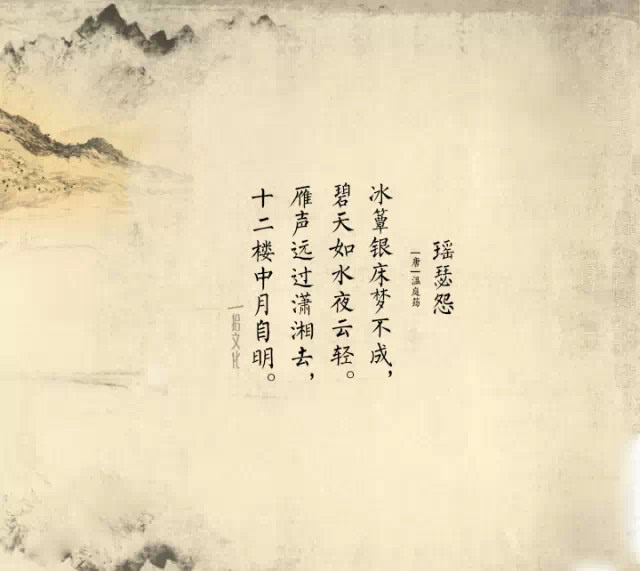 瑶瑟怨
[唐]温庭筠
冰簟银床梦不成，
碧天如水夜云轻。
雁声远过潇湘去，
十二楼中月自明。
一俗文化